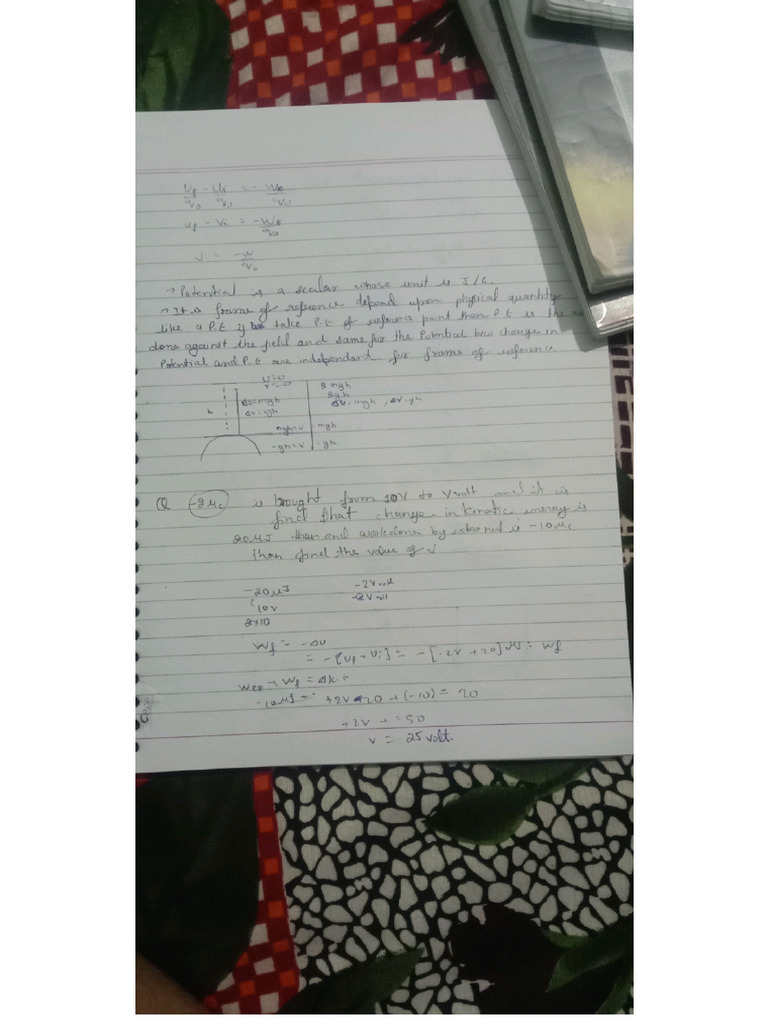 Uf/q₀ - Ui/q₀ = - WE/q₀
vf - Vi = -WE/q₀
V = -W/q₀
→ Potential is a scalar whose unit is J/C.
→ It s frame of reference depend upon physical quantity
like a P.E if we take P.E of reference point then P.E is the
done against the field and same for the Potential b/w change in
Potential and P.E are independant for frame of reference.
U=0
V=0
h
ΔU=mgh
ΔV=gh
2 mgh
2gh
ΔU=mgh , ΔV=gh
-mgh
-gh=V
-gh
Q -2μc is brought from 10V to V volt and it is
find that change in kinatic energy is
20μJ then and workdone by external is -10μc
than find the value of V
-20μJ
10V
2×10
-2V volt
-2V volt
Wf = -ΔU
= -[Uf - Ui] = -[-2V + 20]μJ = Wf
Wex + Wf = Δk.E
+2V -20 + (-10) = 20
+2V = 50
V = 25 volt.